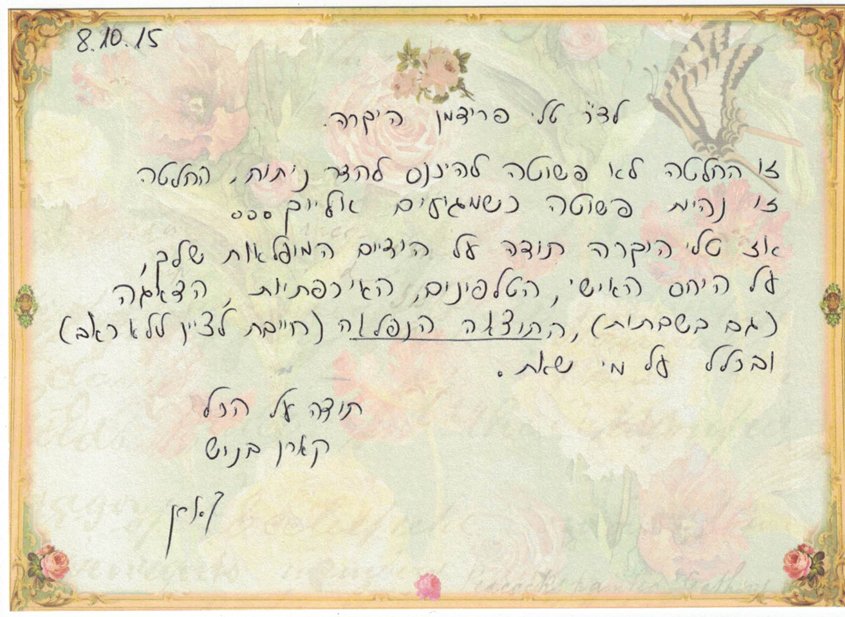 8.10.15
לד"ר טלי פרידמן היקרה.
זו החלטה לא פשוטה להיכנס לחדר ניתוח, החלטה
זו נהיית פשוטה כשמגיעים אלייך...
אז טלי היקרה תודה על הידיים המופלאות שלך,
על היחס האישי, הטלפונים, האיכפתיות, הדאגה
(גם בשבתות), התוצאה הנפלאה (חייבת לציין ללא כאב)
ובכלל על מי שאת.
תודה על הכל
קארן בניש
קארן